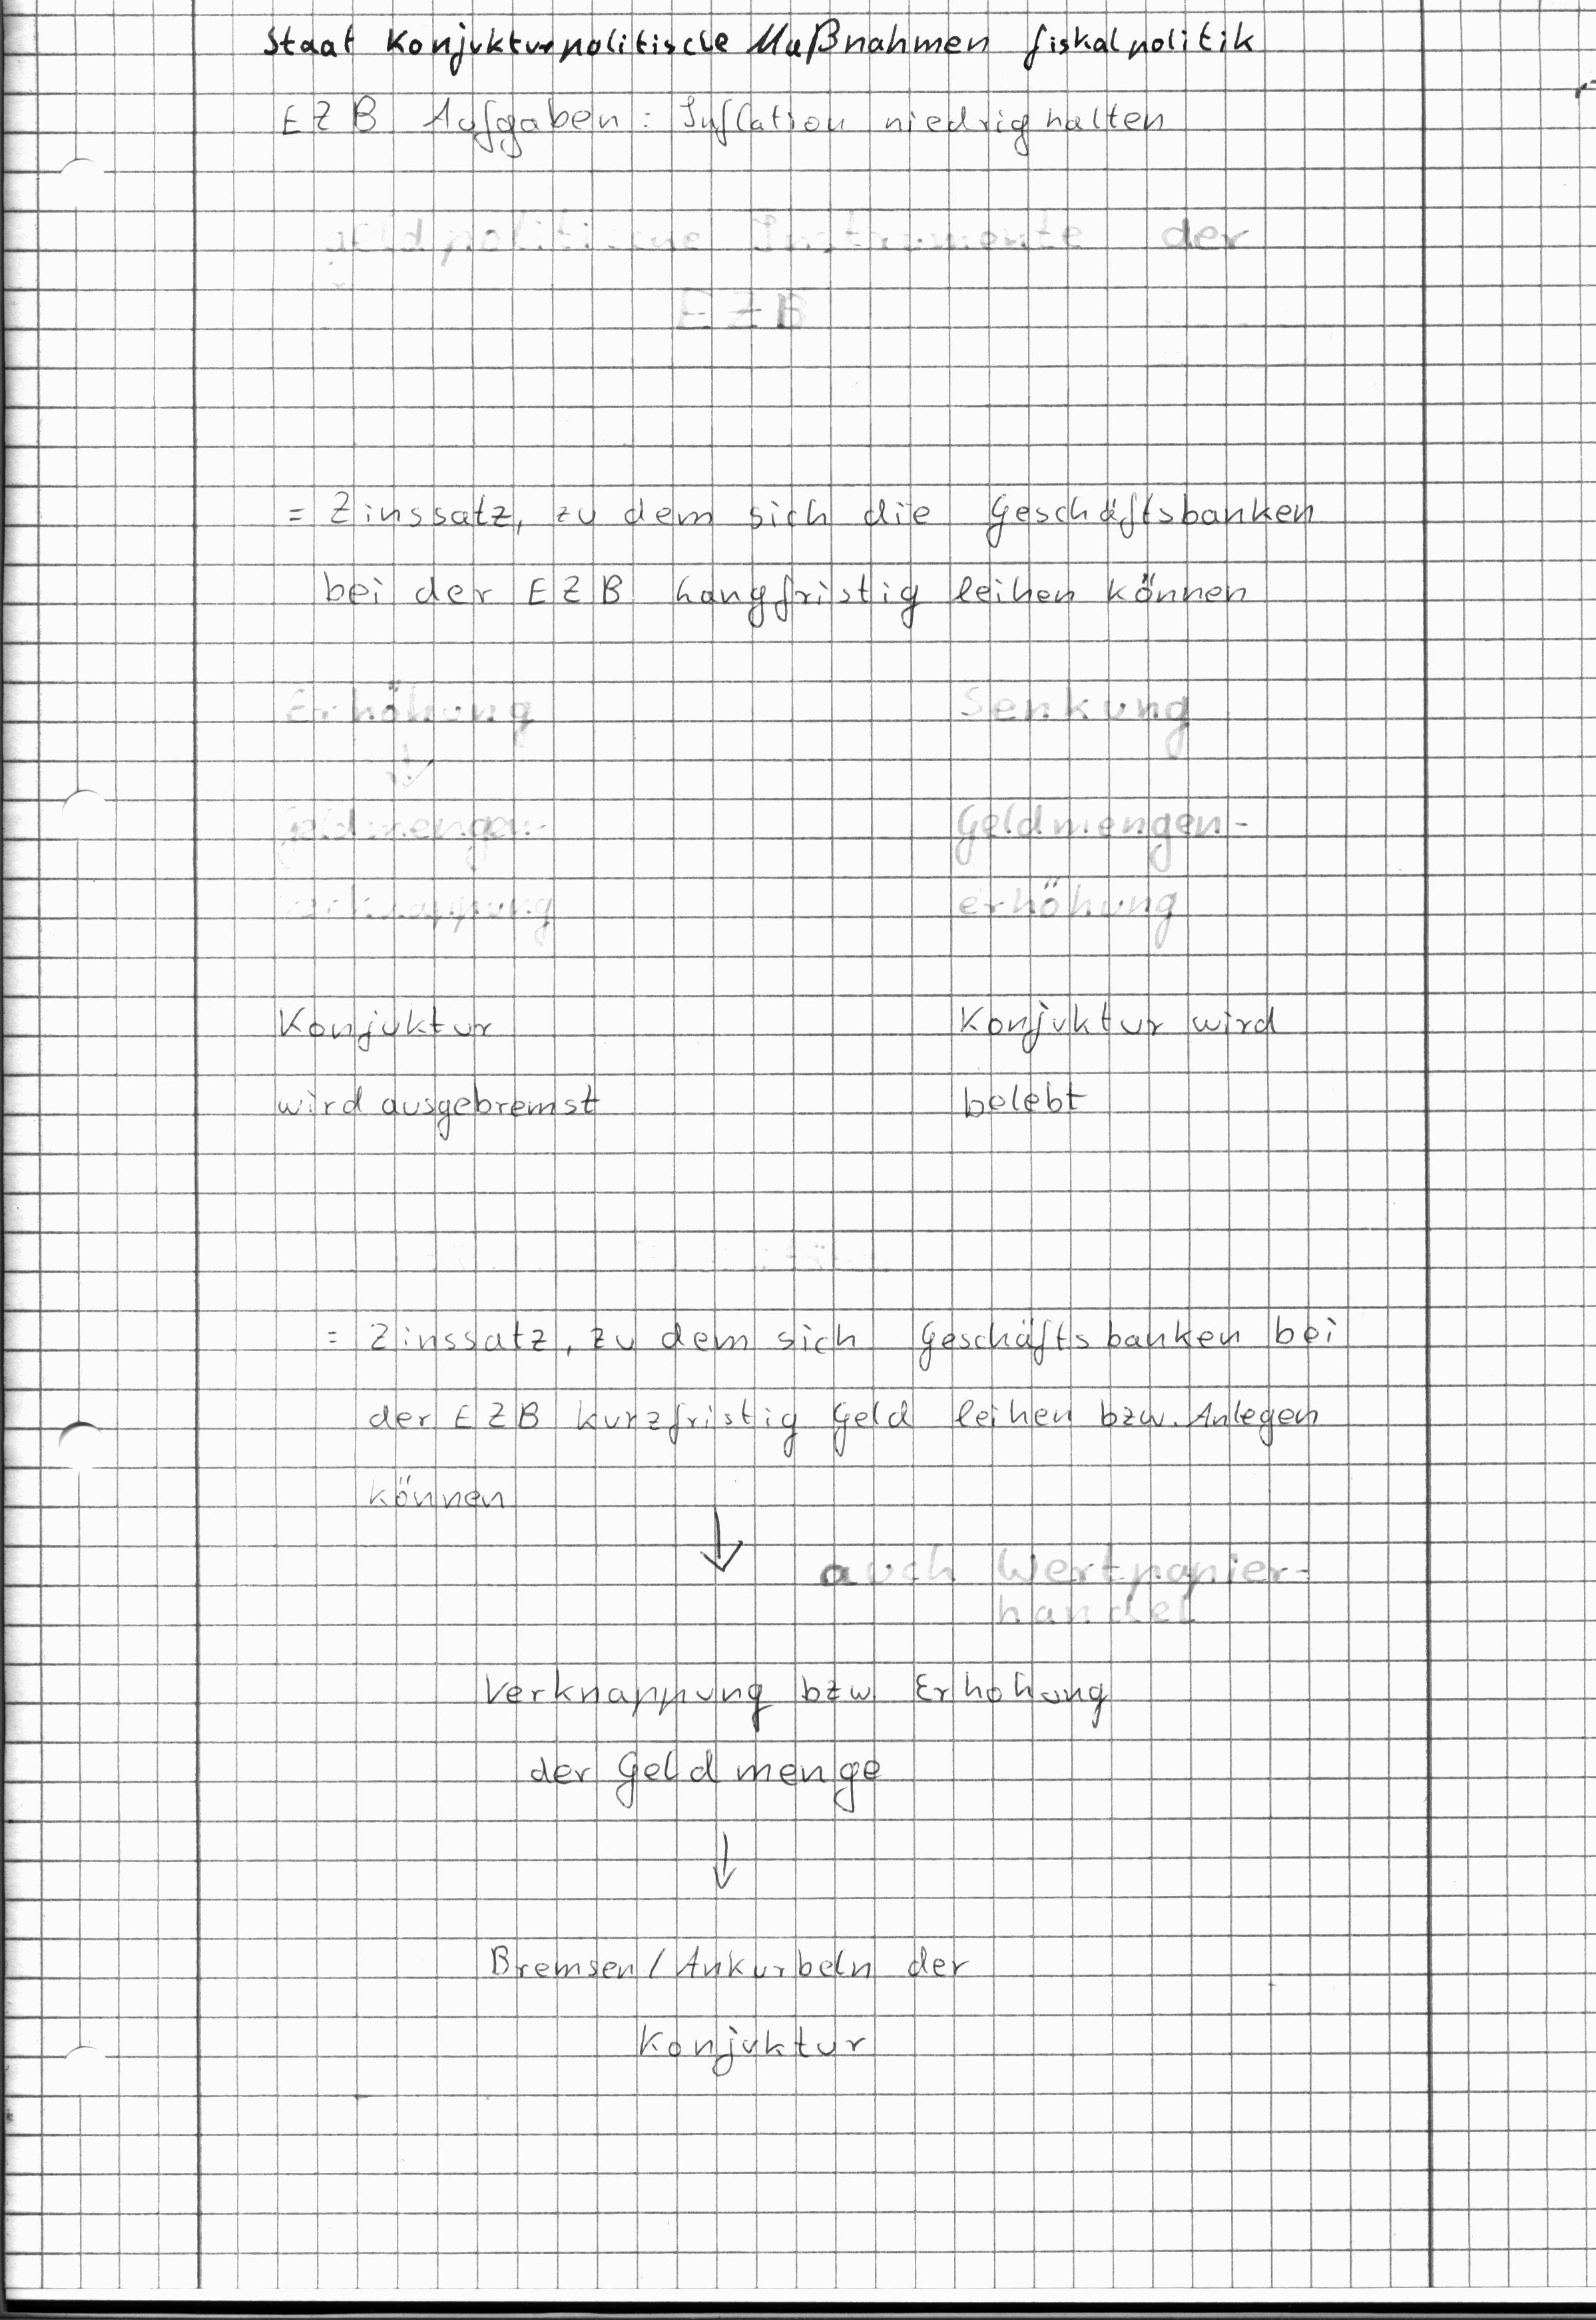 Staat Konjukturpolitische Maßnahmen fiskalpolitik
EZB Aufgaben: Inflation niedrig halten
geldpolitische Instrumente der
EZB
= Zinssatz, zu dem sich die Geschäftsbanken
bei der EZB langfristig leihen können
Erhöhung Senkung
↓
Geldmengen- Geldmengen-
verknappung erhöhung
Konjuktur Konjuktur wird
wird ausgebremst belebt
= Zinssatz, zu dem sich Geschäftsbanken bei
der EZB kurzfristig Geld leihen bzw. Anlegen
können
↓
auch Wertpapier-
handel
Verknappung bzw Erhohung
der Geldmenge
↓
Bremsen/Ankurbeln der
Konjuktur